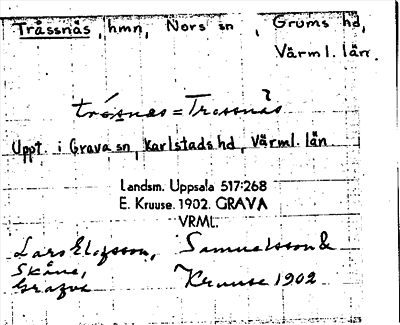 Tråssnäs, hmn, Nors sn, Grums hd,
Värml. län.
trósnäs = Trossnäs
Uppt. i Grava sn, Karlstads hd, Värml. län
Landsm. Uppsala 517:268
E. Kruuse. 1902. GRAVA
VRML.
Lars Elofsson, Samuelsson &
Skåne,
Grafva Kruuse 1902